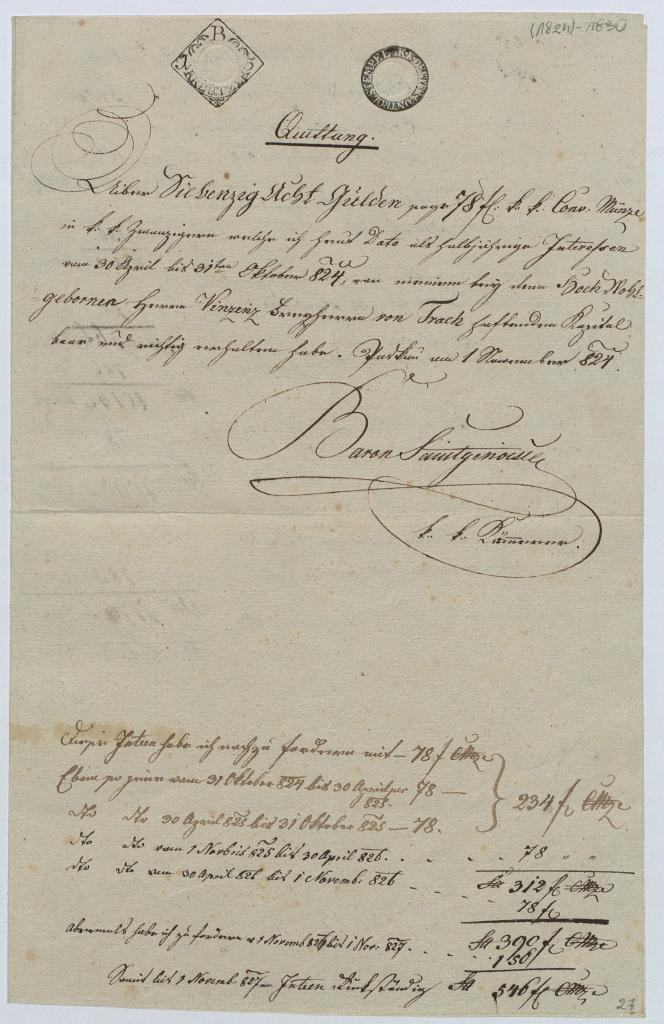 (1824)-1830
B
2 KREUTZER
K. K. STEMPEL
Quittung.
Über Siebenzig Acht Gulden sage 78 f. k. k. Conv. Münze
in k. k. Zwanzigern welche ich heut Dato als halbjährige Interessen
vom 30 April bis 31ten Oktober 824, von meinem bey dem Hoch Wohl-
gebornen Herrn Vinzenz Freyherrn von Track haftenden Kapital
baar und richtig erhalten habe. Paskau am 1 November 824.
Baron Saintgenois
k. k. Kämmerer.
Diese Inteen habe ich nachzu fordern mit — 78 f CMze
Eben so jene vom 31 Oktober 824 bis 30 April 78 —
825
234 f CMze
dto dto 30 April 825 bis 31 Oktober 825 — 78.
dto dto vom 1 Novbris 825 bis 30 April 826. . . . 78 " "
dto dto vom 30 April 826 bis 1 Novemb: 826 . . Sa 312 f CMze
78 f
Abermals habe ich zu fordern v 1 Novemb 826 bis 1 Nov: 827 . . . Sa 390 f CMze
156
Somit bis 1 Novemb: 827 an Inteen Rückständig Sa 546 f CMze
27